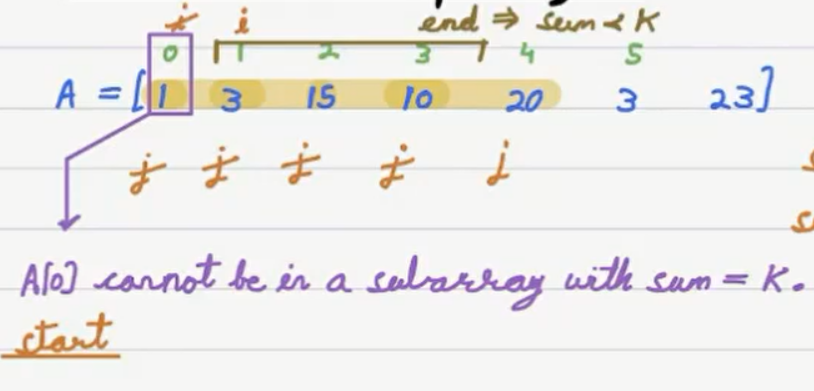 i i end ⇒ sum < K
0 1 2 3 4 5
A = [ 1 3 15 10 20 3 23 ]
j j j j j
A[0] cannot be in a subarray with sum = K.
start